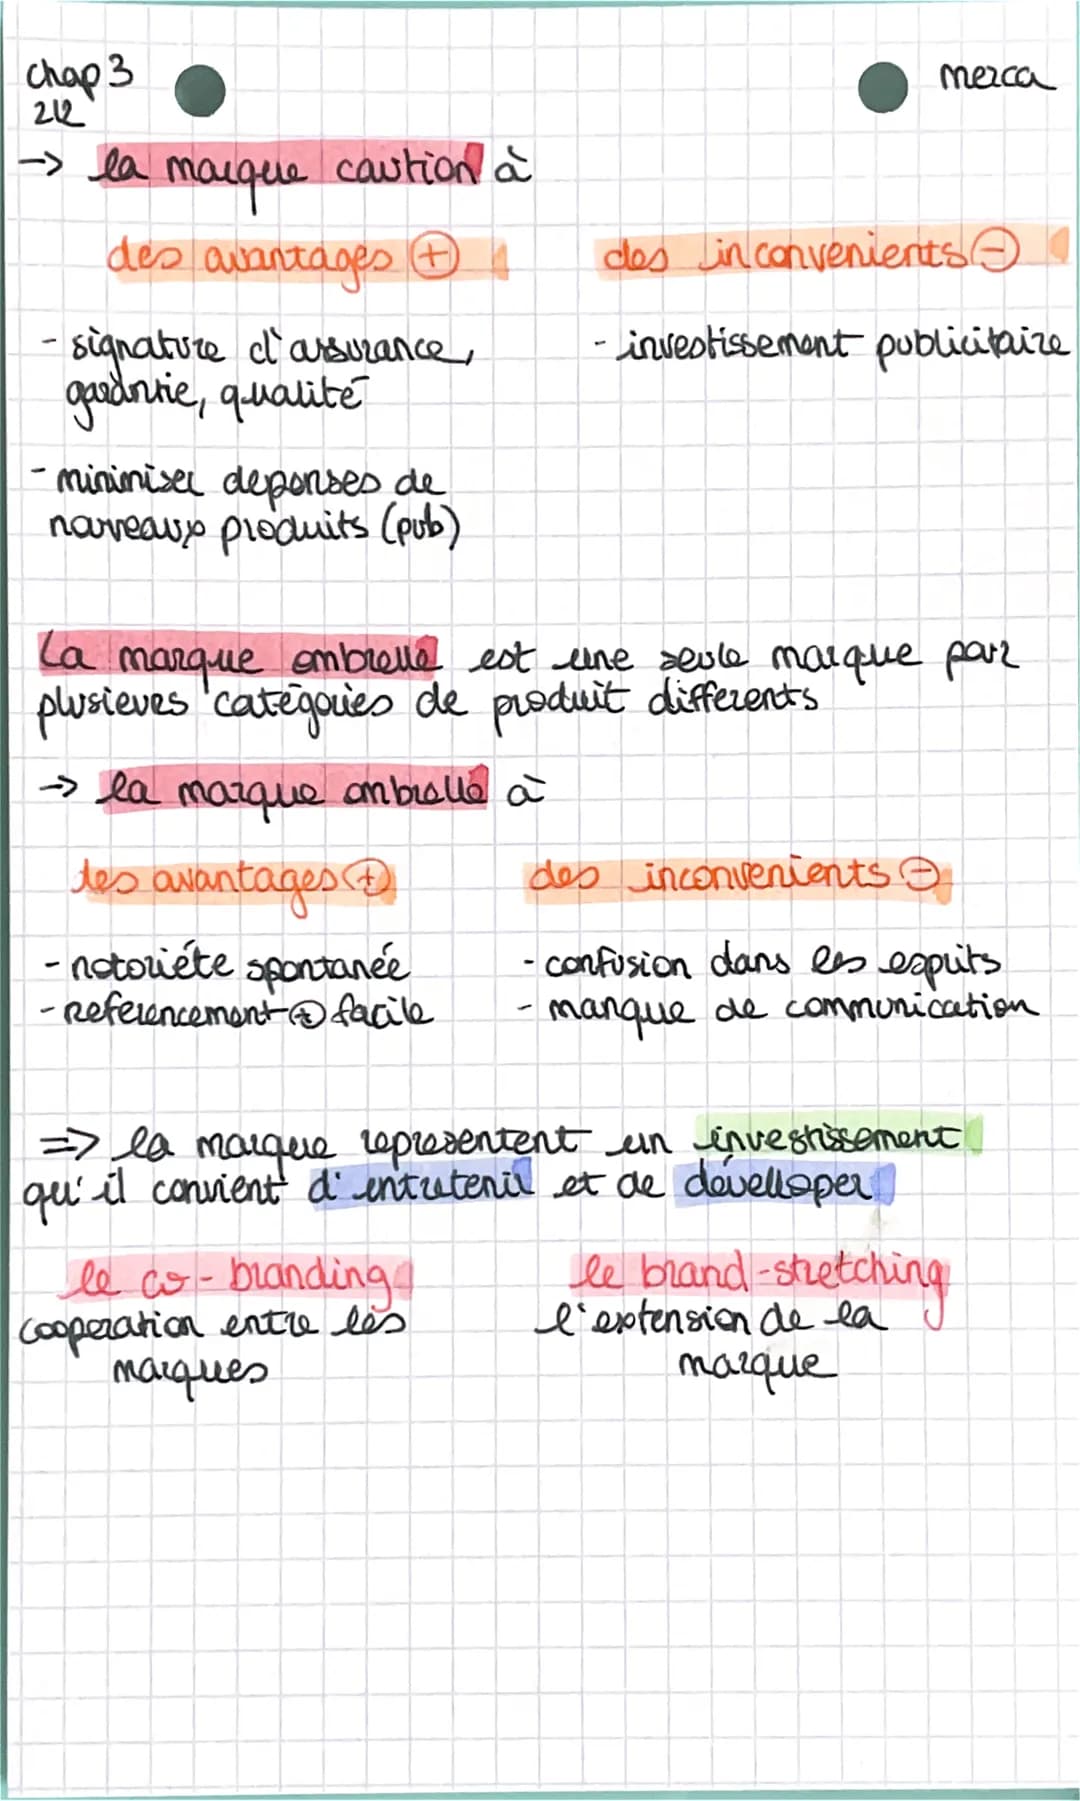 chap 3
merca
2/2
→ la marque caution à
des avantages ⊕
des inconvenients ⊖
- signature d'assurance,
garantie, qualité
- investissement publicitaire
- minimiser depenses de
nouveaux produits (pub)
La marque ombrelle est une seule marque par
plusieurs catégories de produit differents
→ la marque ombrelle à
des avantages ⊕
des inconvenients ⊖
- notoriéte spontanée
- referencement ⊕ facile
- confusion dans les esprits
- manque de communication
=> la marque representent un investissement
qu'il convient d'entretenir et de développer
le co-branding
cooperation entre les
marques
le brand-stretching
l'extension de la
marque